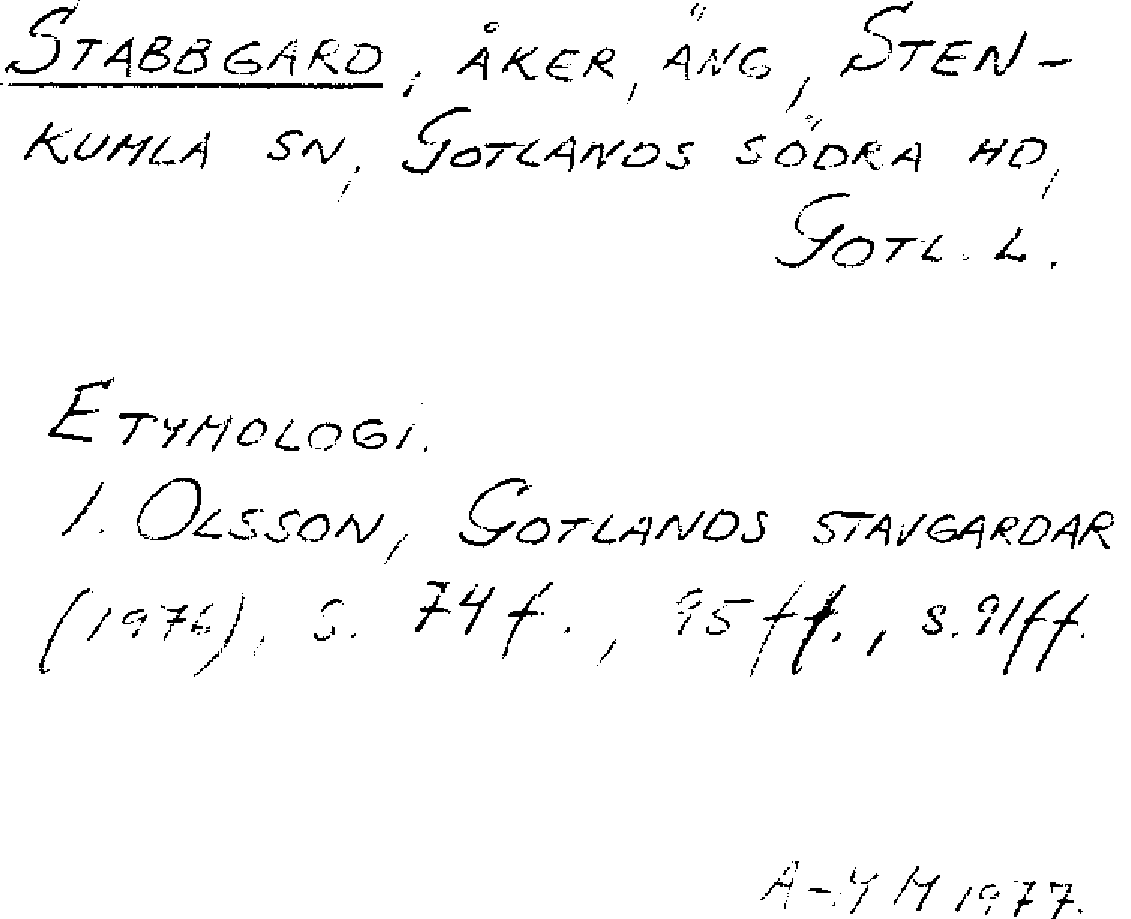 STABBGARD, ÅKER, ÄNG, STEN-
KUMLA SN, GOTLANDS SÖDRA HD,
GOTL. L.
ETYMOLOGI.
I. OLSSON, GOTLANDS STAVGARDAR
(1976), S. 74 f., 95 ff., s. 91 ff.
A-M M 1977.